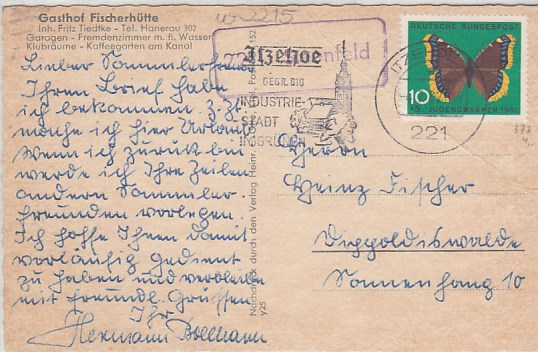 w 2215
Gasthof Fischerhütte
Inh. Fritz Tiedtke - Tel. Hanerau 302
Garagen - Fremdenzimmer m. fl. Wasser
Klubräume - Kaffeegarten am Kanal
Lieber Sammlerfreund
Ihren Brief habe
ich bekommen. Z. Zt.
mache ich hier Urlaub
Wenn ich zurück bin
werde ich Ihre Zeilen
andern Sammler-
freunden vorlegen.
Ich hoffe Ihnen damit
vorläufig gedient
zu haben und verbleibe
mit freundl. Grüssen
Ihr
Hermann Bollmann
Nachdruck durch den Verlag Heinr.
Y25
Itzehoe
GEGR. 810
INDUSTRIE-
STADT
IM GRÜNEN
221
DEUTSCHE BUNDESPOST
10
JUGENDMARKEN 1962
Herrn
Heinz Fischer
Dippoldiswalde
Sonnenhang 10